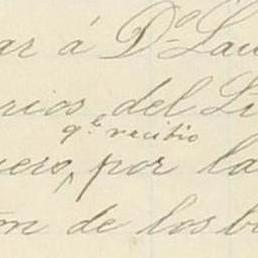 ar á Dª Lau
rios del Li
q.e recibio
uero, por la
on de los b